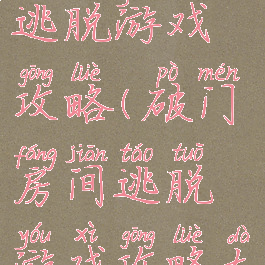 逃脱游戏
gōng lüè pò mén
攻略(破门
fáng jiān táo tuō
房间逃脱
yóu xì gōng lüè dà
游戏攻略大